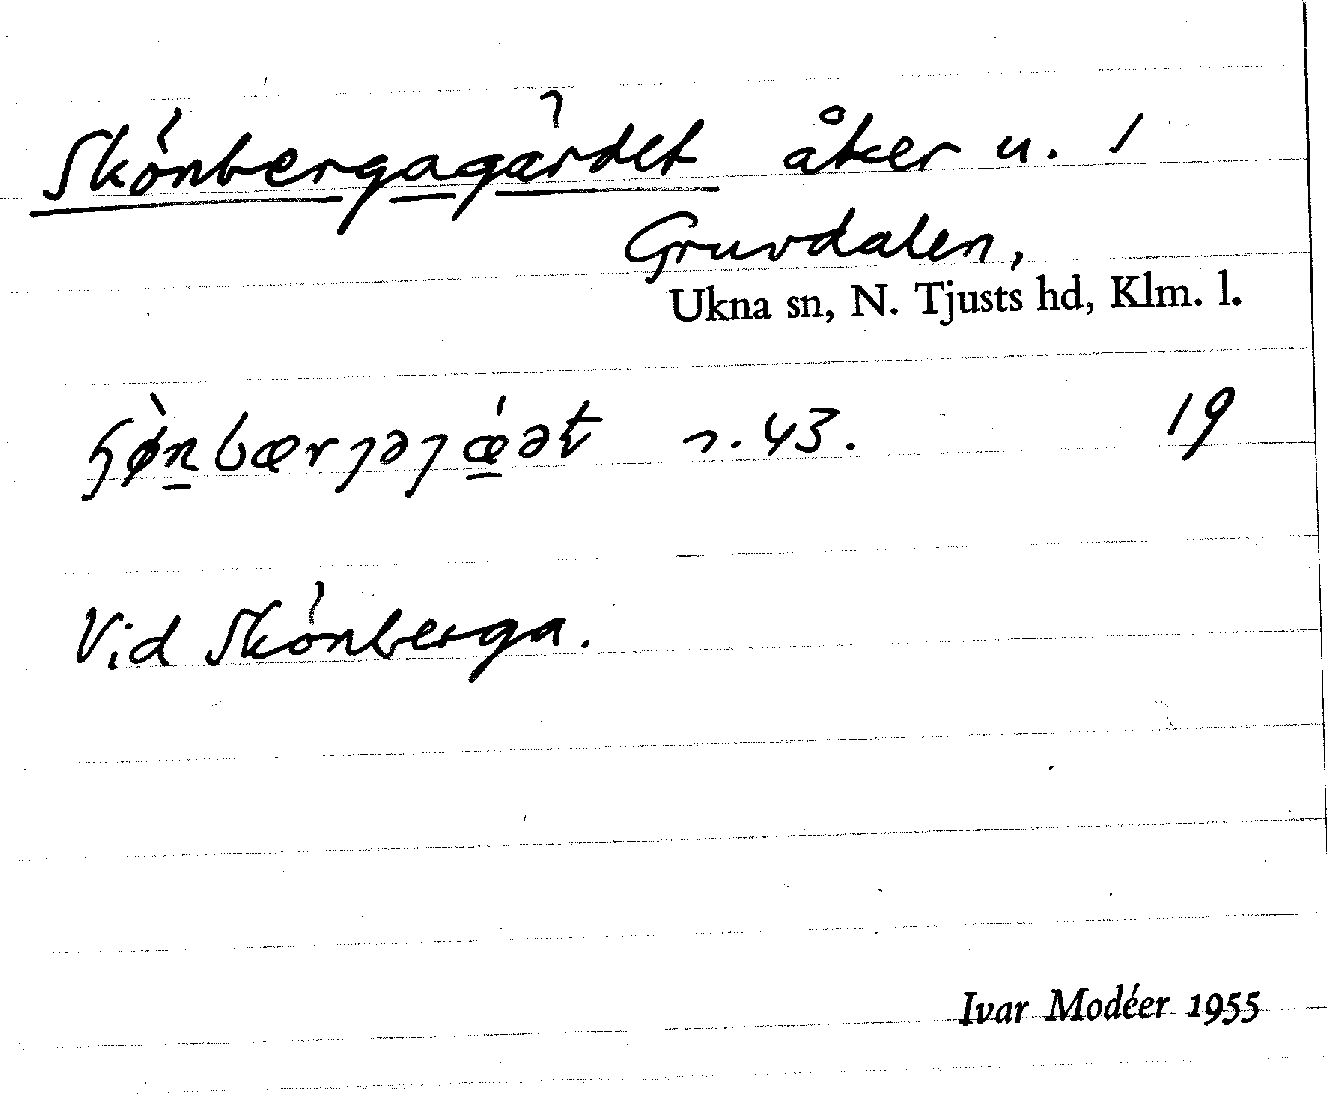 Skönbergagärdet åker u. 1
Gruvdalen,
Ukna sn, N. Tjusts hd, Klm. l.
n. 43. 19
Vid Skönberga.
Ivar Modéer 1955